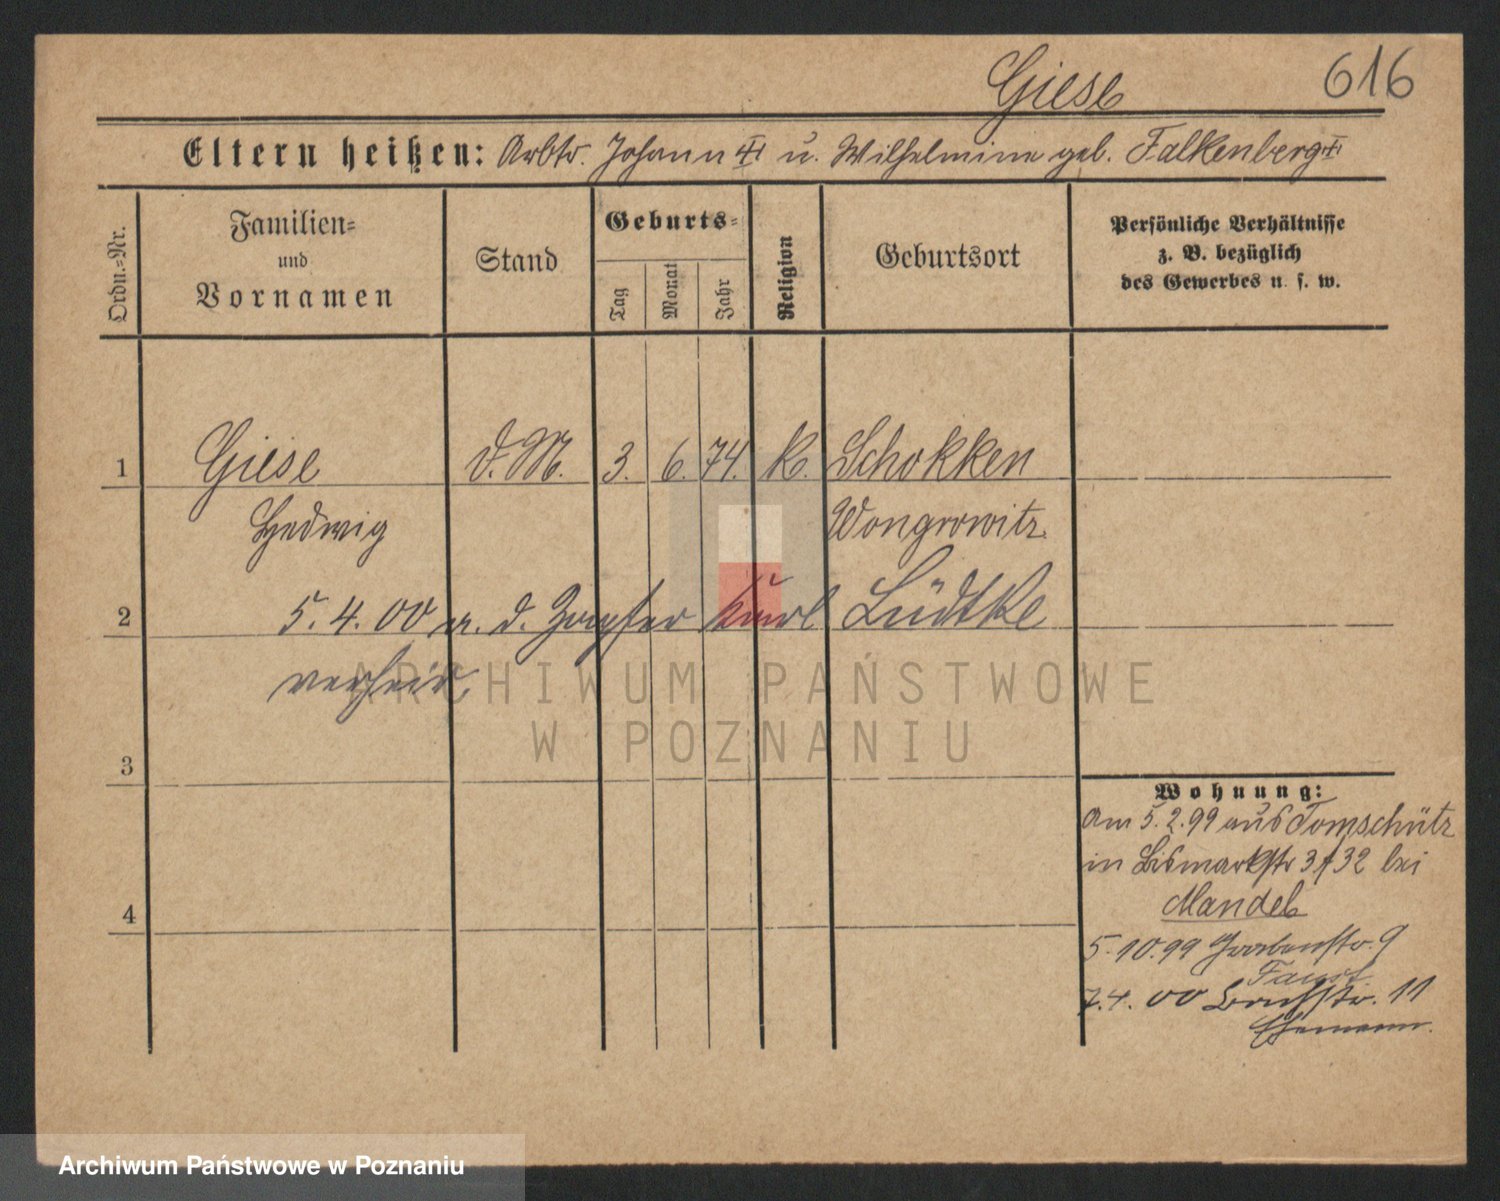 616
Giese
Eltern heißen: Arbtr. Johann u. Wilhelmine geb. Falkenberg
Ordn.-Nr.
Familien-
und
Vornamen
Stand
Geburts-
Tag
Monat
Jahr
Religion
Geburtsort
Persönliche Verhältnisse
z. B. bezüglich
des Gewerbes u. s. w.
1 Giese d. M. 3. 6. 74. K. Schokken
Hedwig Wongrowitz.
2 5. 4. 00 m. d. Karl Lüdtke
verheir.
3
4
Wohnung:
Am 5.2.99 aus Tomschütz
in Bismarkstr 31/32 bei
Mandel
5.10.99 Grabenstr. 9
Faust
7.4.00 Bachstr. 11
Ehemann.
ARCHIWUM PAŃSTWOWE
W POZNANIU
Archiwum Państwowe w Poznaniu